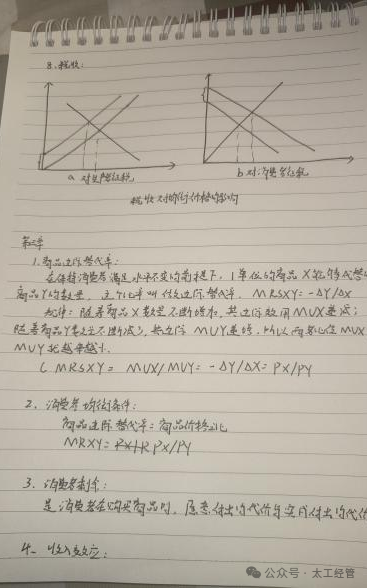 8. 税收:
a 对生产者征税
b 对消费者征税
税收对均衡价格的影响
第三章
1. 商品边际替代率:
在保持消费者满足水平不变的前提下, 1单位的商品X能够代替
商品Y的数量, 这个比率叫做边际替代率. MRSXY = -ΔY/ΔX
规律: 随着商品X数量不断增加, 其边际效用MUX递减;
随着商品Y数量不断减少, 其边际 MUY递增, 所以两者比值MUX
MUY
( MRSXY = MUX/MUY = -ΔY/ΔX = PX/PY
2. 消费者均衡条件:
商品边际替代率=商品价格之比
MRXY = PX/PY
3. 消费者剩余:
是消费者在购买商品时, 愿意付出的代价与实际付出的代价
4. 收入效应:
公众号 · 太工经管